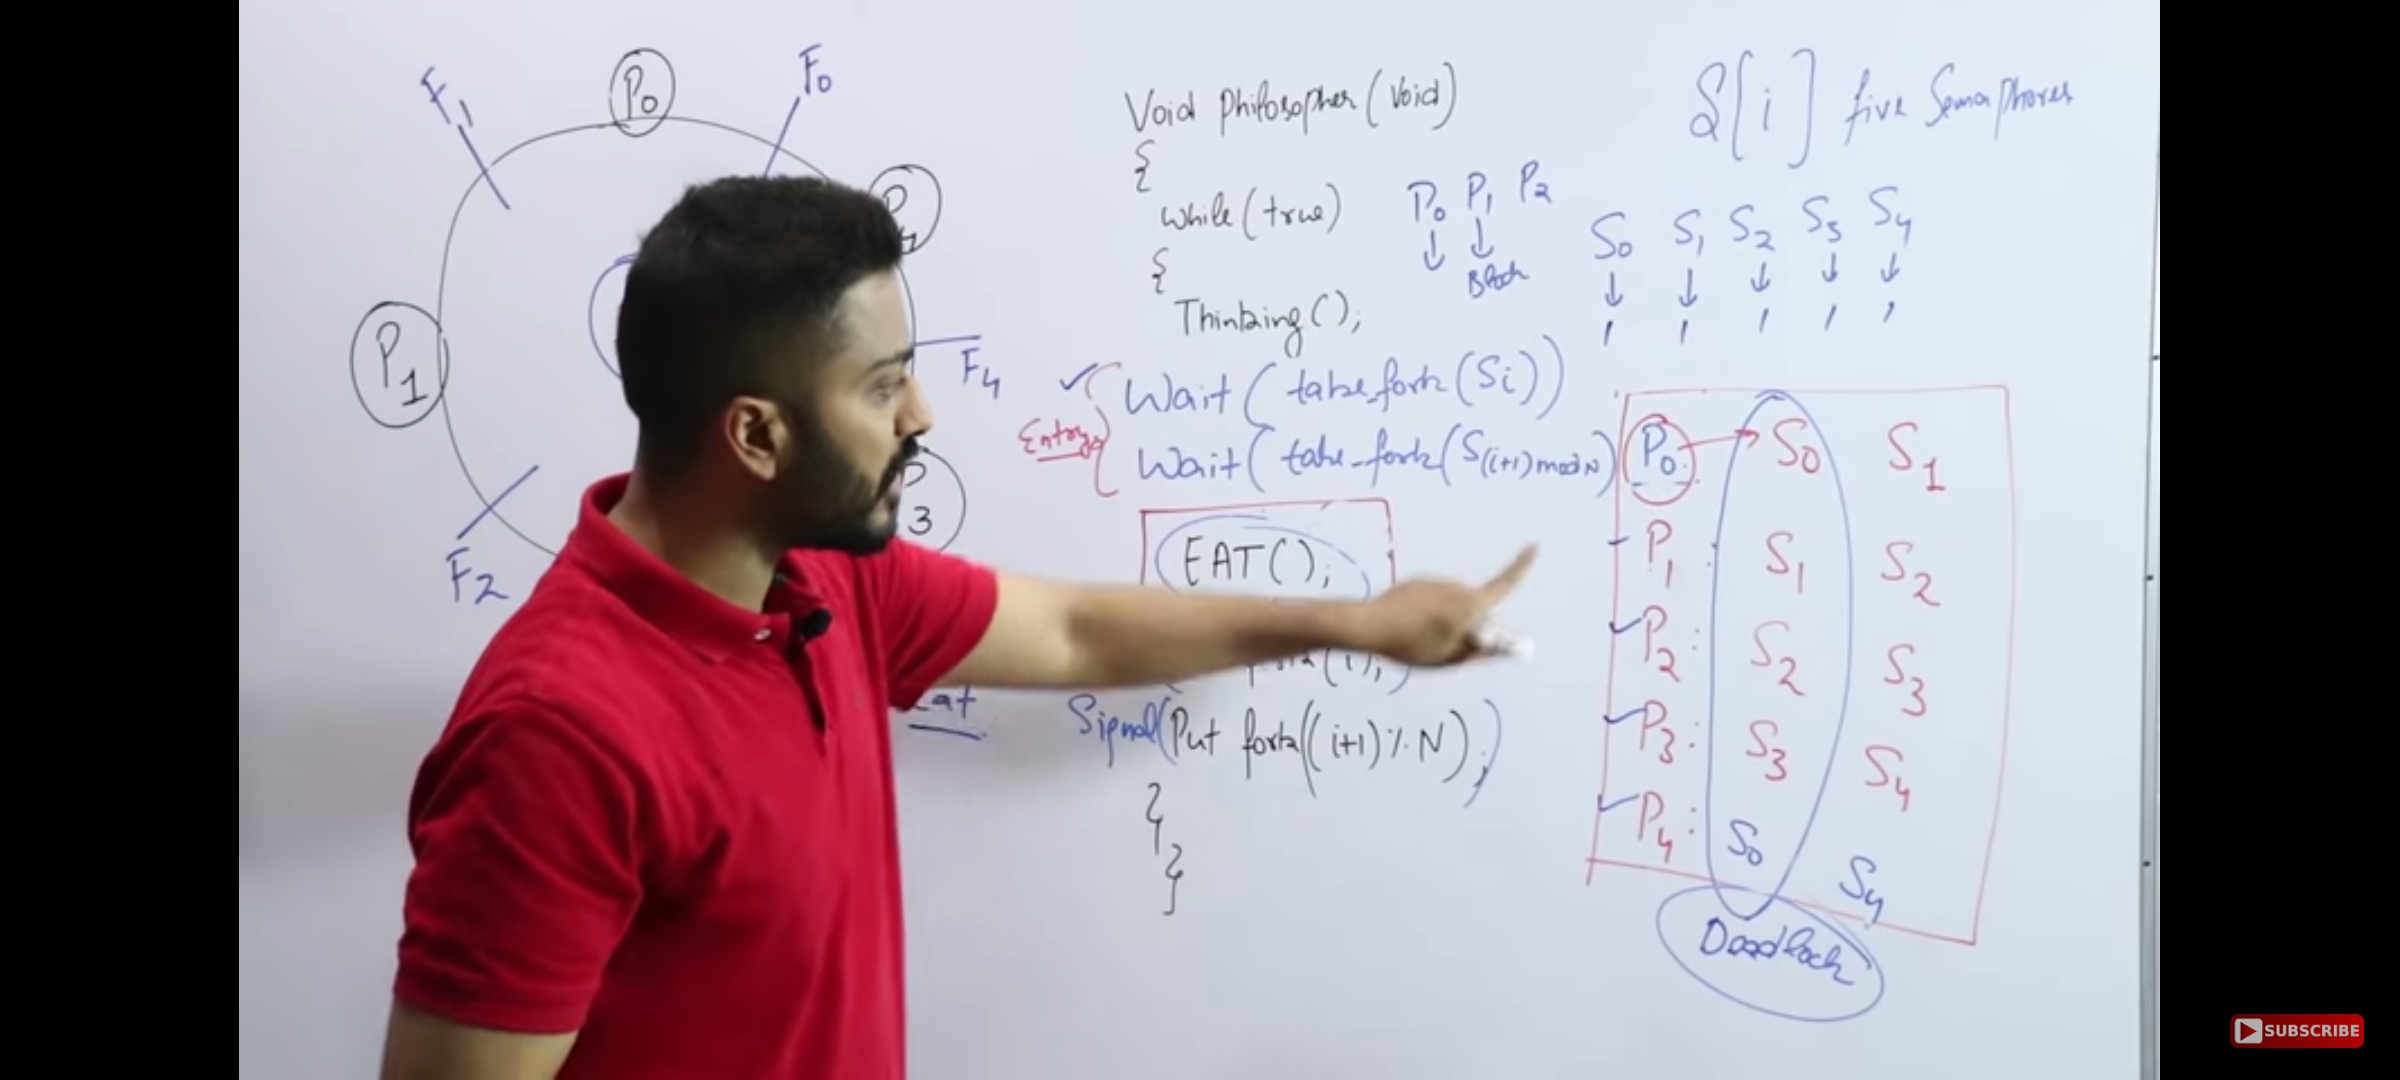 F1
P0
F0
P1
F4
3
F2
Void Philosopher(Void)
{
while(true)
{
Thinking();
Wait(take_fork(Si))
Wait(take_fork(S(i+1)modN)
Entry
EAT();
Signal(Put fork((i+1)%N);)
}
}
P0 P1 P2
Block
S[i] five Semaphores
S0 S1 S2 S3 S4
1 1 1 1 1
P0 S0 S1
P1 : S1 S2
P2 : S2 S3
P3 : S3 S4
P4 : S0 S4
Deadlock
SUBSCRIBE